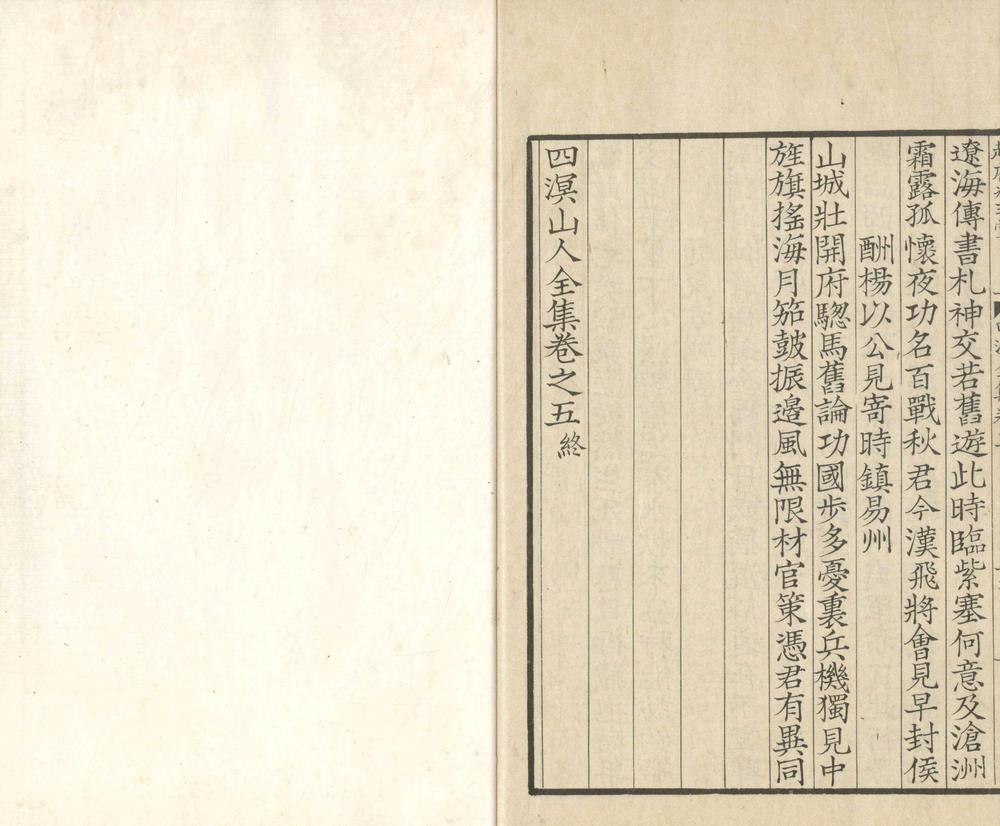 遼海傳書札神交若舊遊此時臨紫塞何意及滄洲
霜露孤懷夜功名百戰秋君今漢飛將會見早封侯
酬楊以公見寄時鎮易州
山城壯開府驄馬舊論功國步多憂裏兵機獨見中
旌旗搖海月笳鼓振邉風無限材官策憑君有異同
四溟山人全集卷之五終